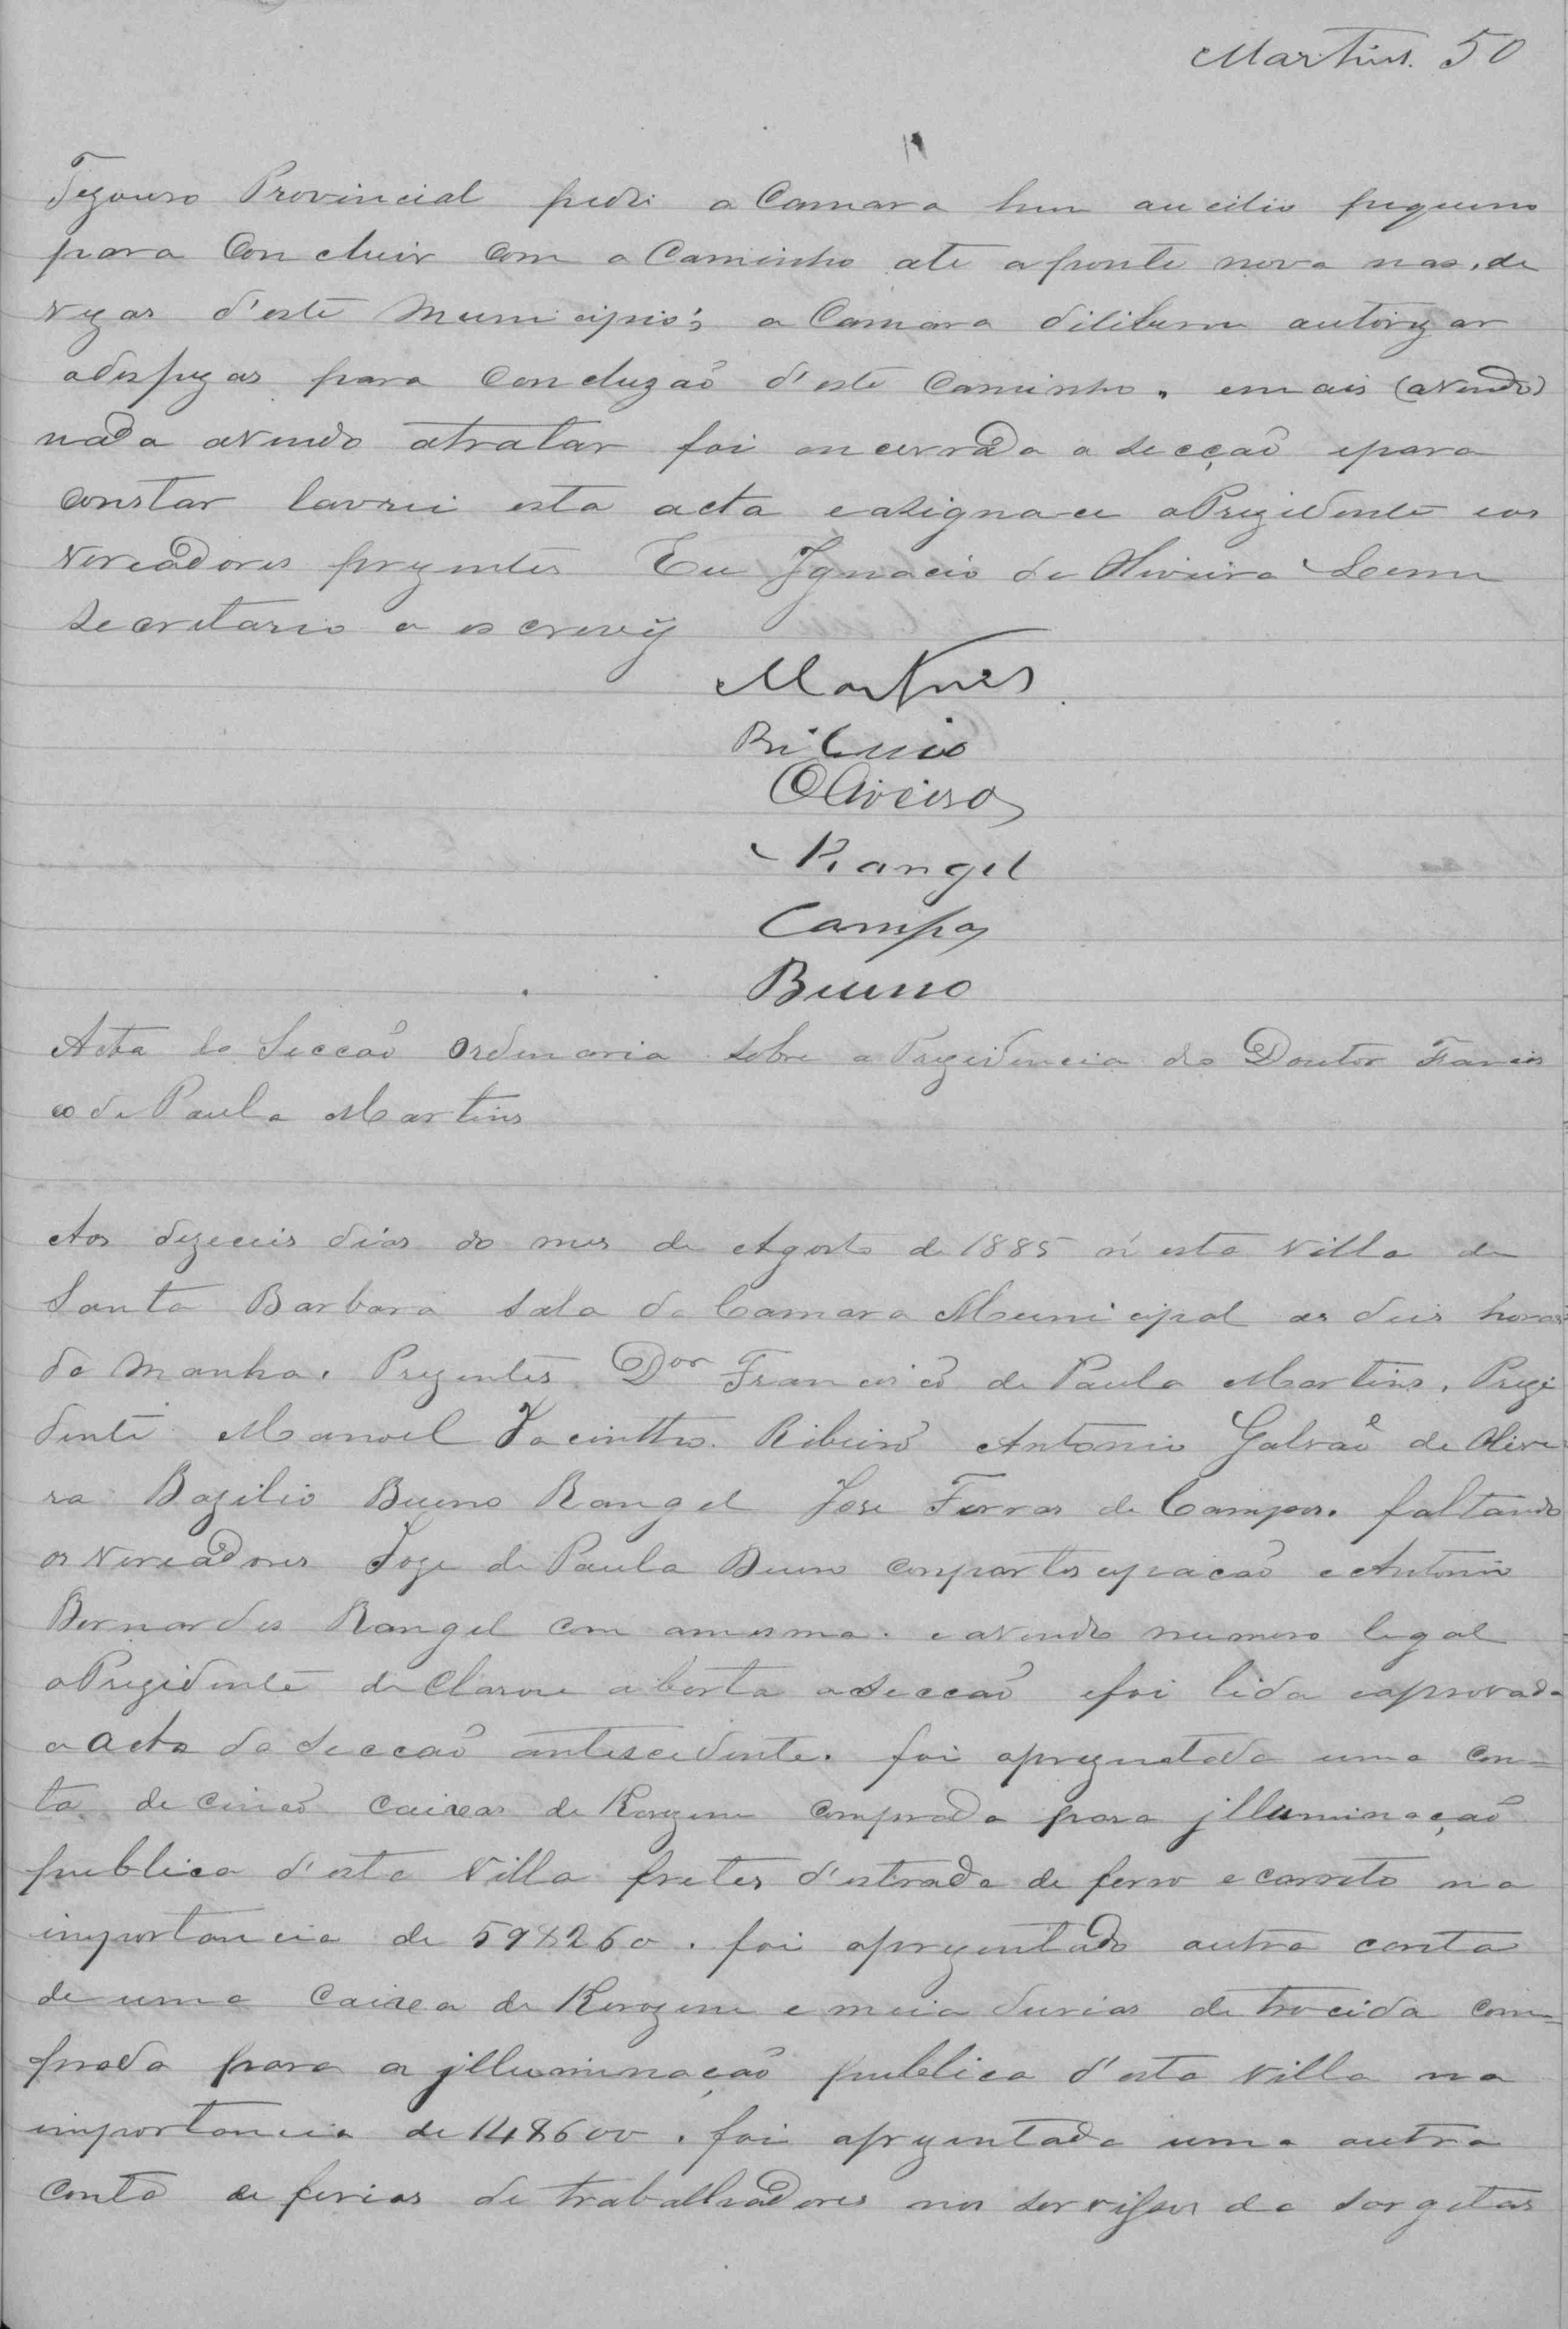 Martins. 50
Tezouro Provincial pedi a Camara hum aucilio piqueno
para Concluir com o Caminho ate a ponte nova nas de
vizas d'este Municipio; a Camara diliberou autorizar
as despezas para Concluzaõ d'este Caminho. emais (avendo)
nada avendo atratar foi encerrada a secçaõ epara
constar lavrei esta acta easignace oPrezidente eos
Vereadores prezentes Eu Ignacio de Oliveira Leme
Secretario a escrevij
Martins.
Ribeiro
Oliveira
Rangel
Campos
Bueno
Acta da Secçaõ Ordenaria sobre a Prezidencia do Doutor Francis
co de Paula Martins
Aos dezeceis dias do mes de Agosto de 1885 n'esta villa de
Santa Barbara sala da Camara Municipal as deis horas
da manha. Prezentes Dor Francisco de Paula Martins. Prezi
dente Manoel Jacinttho Ribeiro Antonio Galvaõ de Olivei
ra Bazilio Bueno Rangel Jose Ferras de Campos. faltando
os Vereadores Joze de Paula Bueno compartecipacaõ e Antonio
Bernardes Rangel com amesma. e avendo numero legal
oPrezidente declarou aberta aseccaõ efoi lida eaprovada
a acta da seccaõ antescedente. foi aprezentada uma con=
ta de cinco caixas de Kerozene comprada para jlluminaçaõ
publica d'esta Villa fretes d'estrada de ferro e carreto na
importancia de 59$260. foi aprezentado outra conta
de uma Caixa de Kerozene e meia duzias de trocida com=
prada para a jlluminaçaõ publica d'esta villa na
importancia de 14$600. foi aprezentada uma outra
conta de ferias de traballhadores nos servissos de sargetas